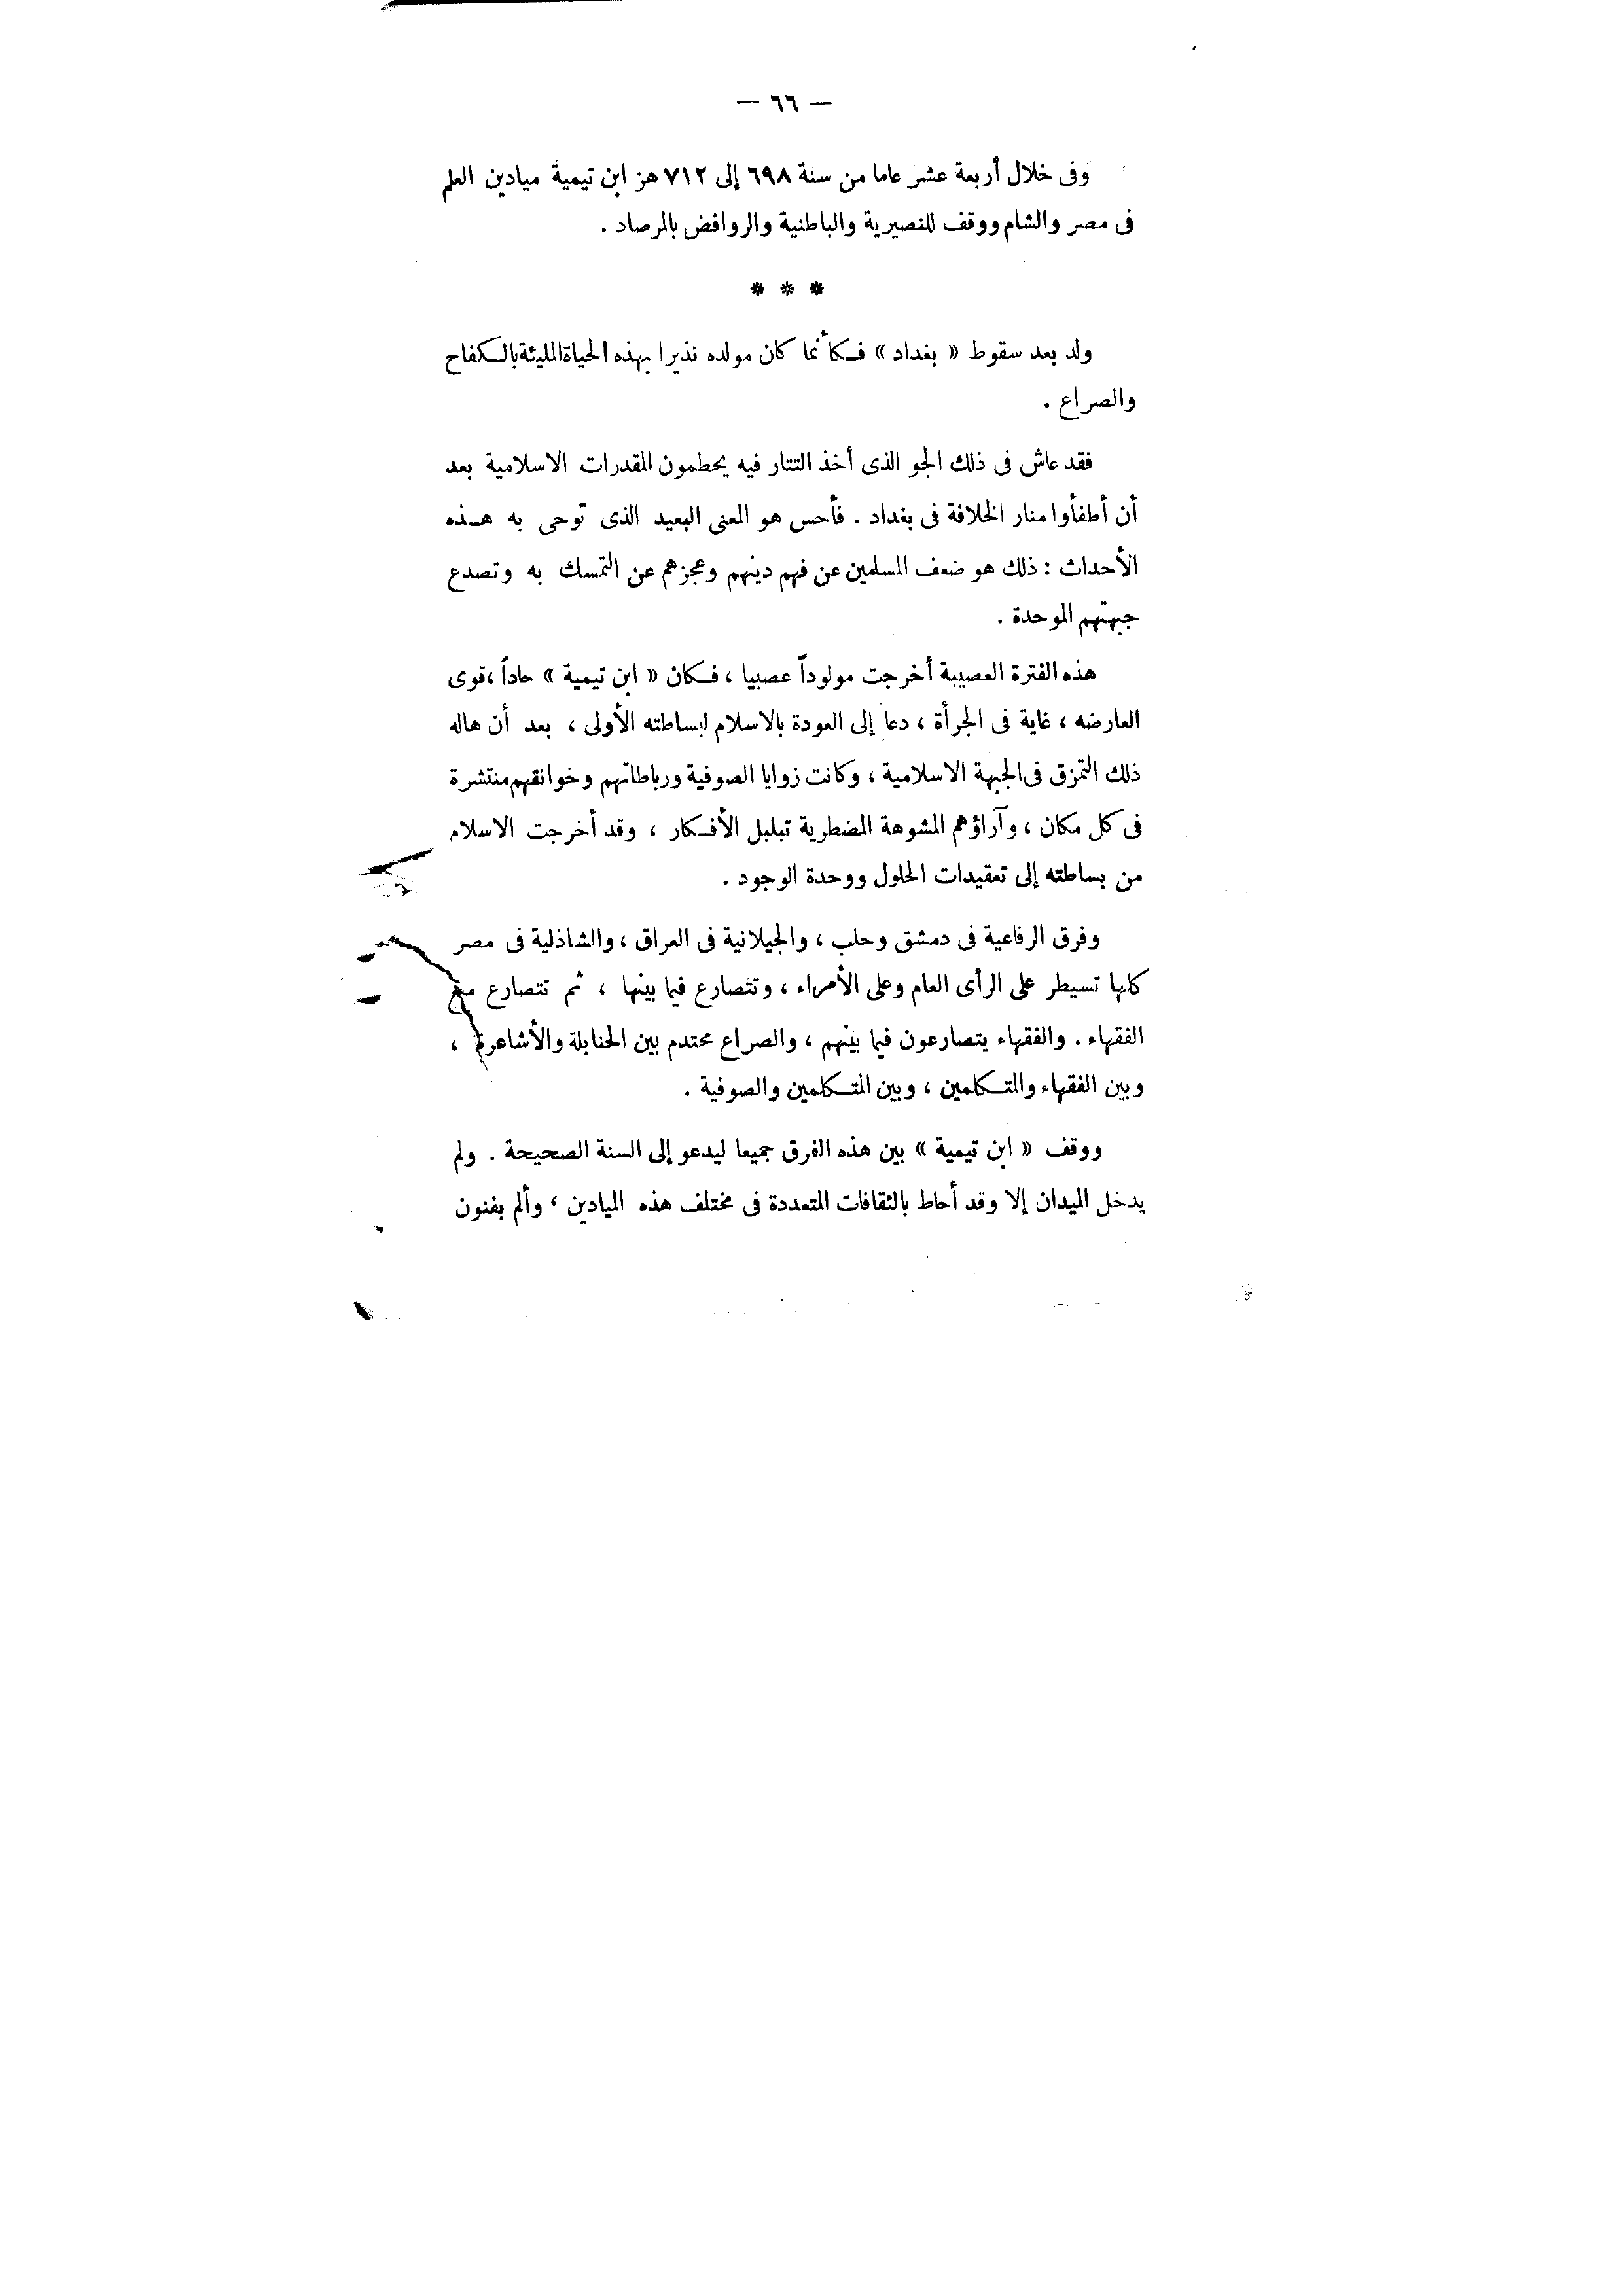 — ٦٦ —
وفى خلال أربعة عشر عاما من سنة ٦٩٨ إلى ٧١٢ هز ابن تيمية ميادين العلم
فى مصر والشام ووقف للنصيرية والباطنية والروافض بالمرصاد .
* * *
ولد بعد سقوط « بغداد » فكأنما كان مولده نذيرا بهذه الحياة المليئة بالكفاح
والصراع .
فقد عاش فى ذلك الجو الذى أخذ التتار فيه يحطمون المقدرات الاسلامية بعد
أن أطفأوا منار الخلافة فى بغداد . فأحس هو المعنى البعيد الذى توحى به هذه
الأحداث : ذلك هو ضعف المسلمين عن فهم دينهم وعجزهم عن التمسك به وتصدع
جبهتهم الموحدة .
هذه الفترة العصيبة أخرجت مولوداً عصبيا ، فكان « ابن تيمية » حاداً ، قوى
العارضه ، غاية فى الجرأة ، دعا إلى العودة بالاسلام لبساطته الأولى ، بعد أن هاله
ذلك التمزق فى الجبهة الاسلامية ، وكانت زوايا الصوفية ورباطاتهم وخوانقهم منتشرة
فى كل مكان ، وآراؤهم المشوهة المضطربة تبلبل الأفكار ، وقد أخرجت الاسلام
من بساطته إلى تعقيدات الحلول ووحدة الوجود .
وفرق الرفاعية فى دمشق وحلب ، والجيلانية فى العراق ، والشاذلية فى مصر
كلها تسيطر على الرأى العام وعلى الأمراء ، وتتصارع فيما بينها ، ثم تتصارع مع
الفقهاء . والفقهاء يتصارعون فيما بينهم ، والصراع محتدم بين الحنابلة والأشاعرة ،
وبين الفقهاء والمتكلمين ، وبين المتكلمين والصوفية .
ووقف « ابن تيمية » بين هذه الفرق جميعا ليدعو إلى السنة الصحيحة . ولم
يدخل الميدان إلا وقد أحاط بالثقافات المتعددة فى مختلف هذه الميادين ، وألم بفنون